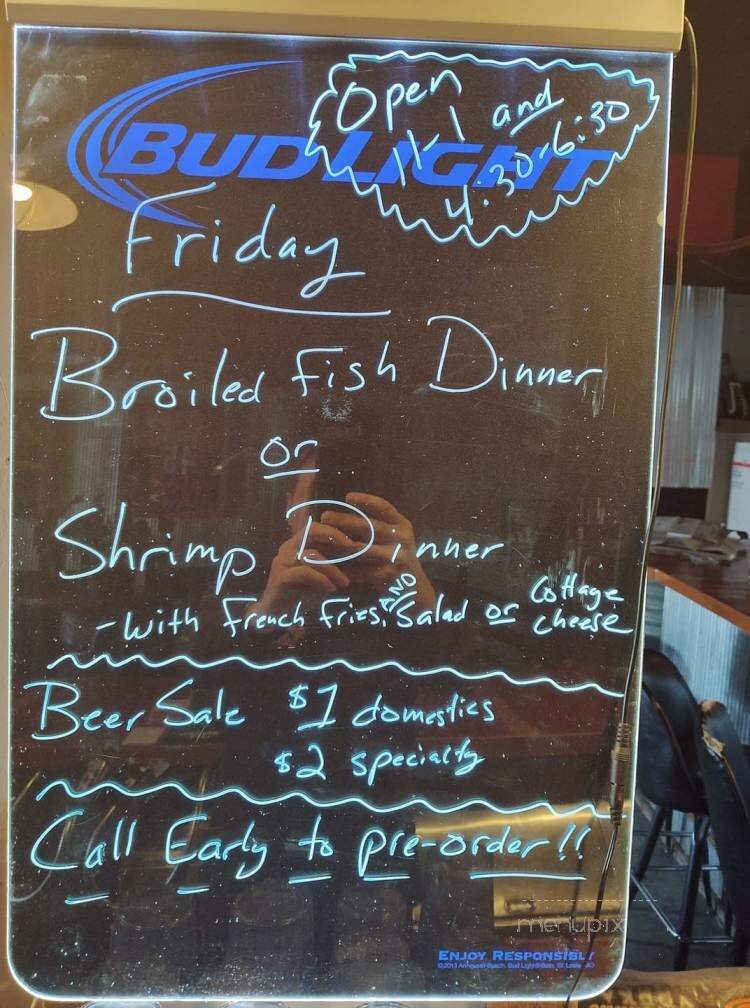 BUD LIGHT
Open
11-1 and
4:30-6:30
Friday
Broiled Fish Dinner
or
Shrimp Dinner
-with French Fries, AND Salad or Cottage cheese
Beer Sale $1 domestics
$2 specialty
Call Early to pre-order!!
menupix
ENJOY RESPONSIBLY
©2013 Anheuser-Busch, Bud Light® Beer, St. Louis, MO